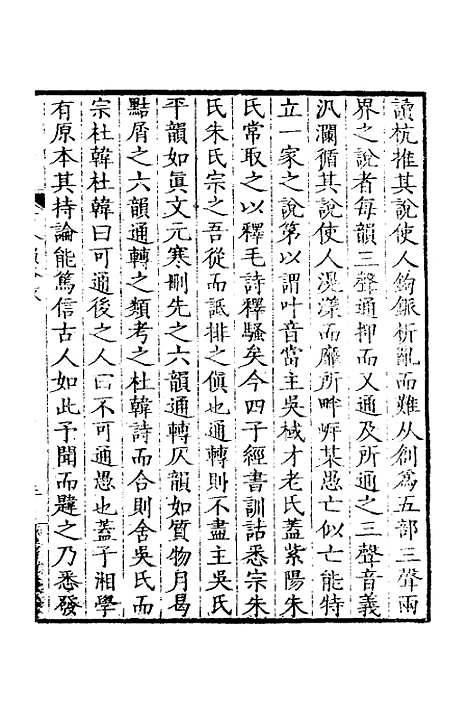 讀杭推其說使人鉤鈲析亂而難从創爲五部三聲兩
界之說者每韻三聲通押而又通及所通之三聲音義
汎瀾循其說使人漫漾而靡所畔岸某愚亡似亡能特
立一家之說第以謂叶音當主吳棫才老氏蓋紫陽朱
氏常取之以釋毛詩釋騷矣今四子經書訓詁悉宗朱
氏朱氏宗之吾從而詆排之傎也通轉則不盡主吳氏
平韻如眞文元寒刪先之六韻通轉仄韻如質物月曷
黠屑之六韻通轉之類考之杜韓詩而合則舍吳氏而
宗杜韓杜韓曰可通後之人曰不可通愚也蓋子湘學
有原本其持論能篤信古人如此予聞而韙之乃悉發